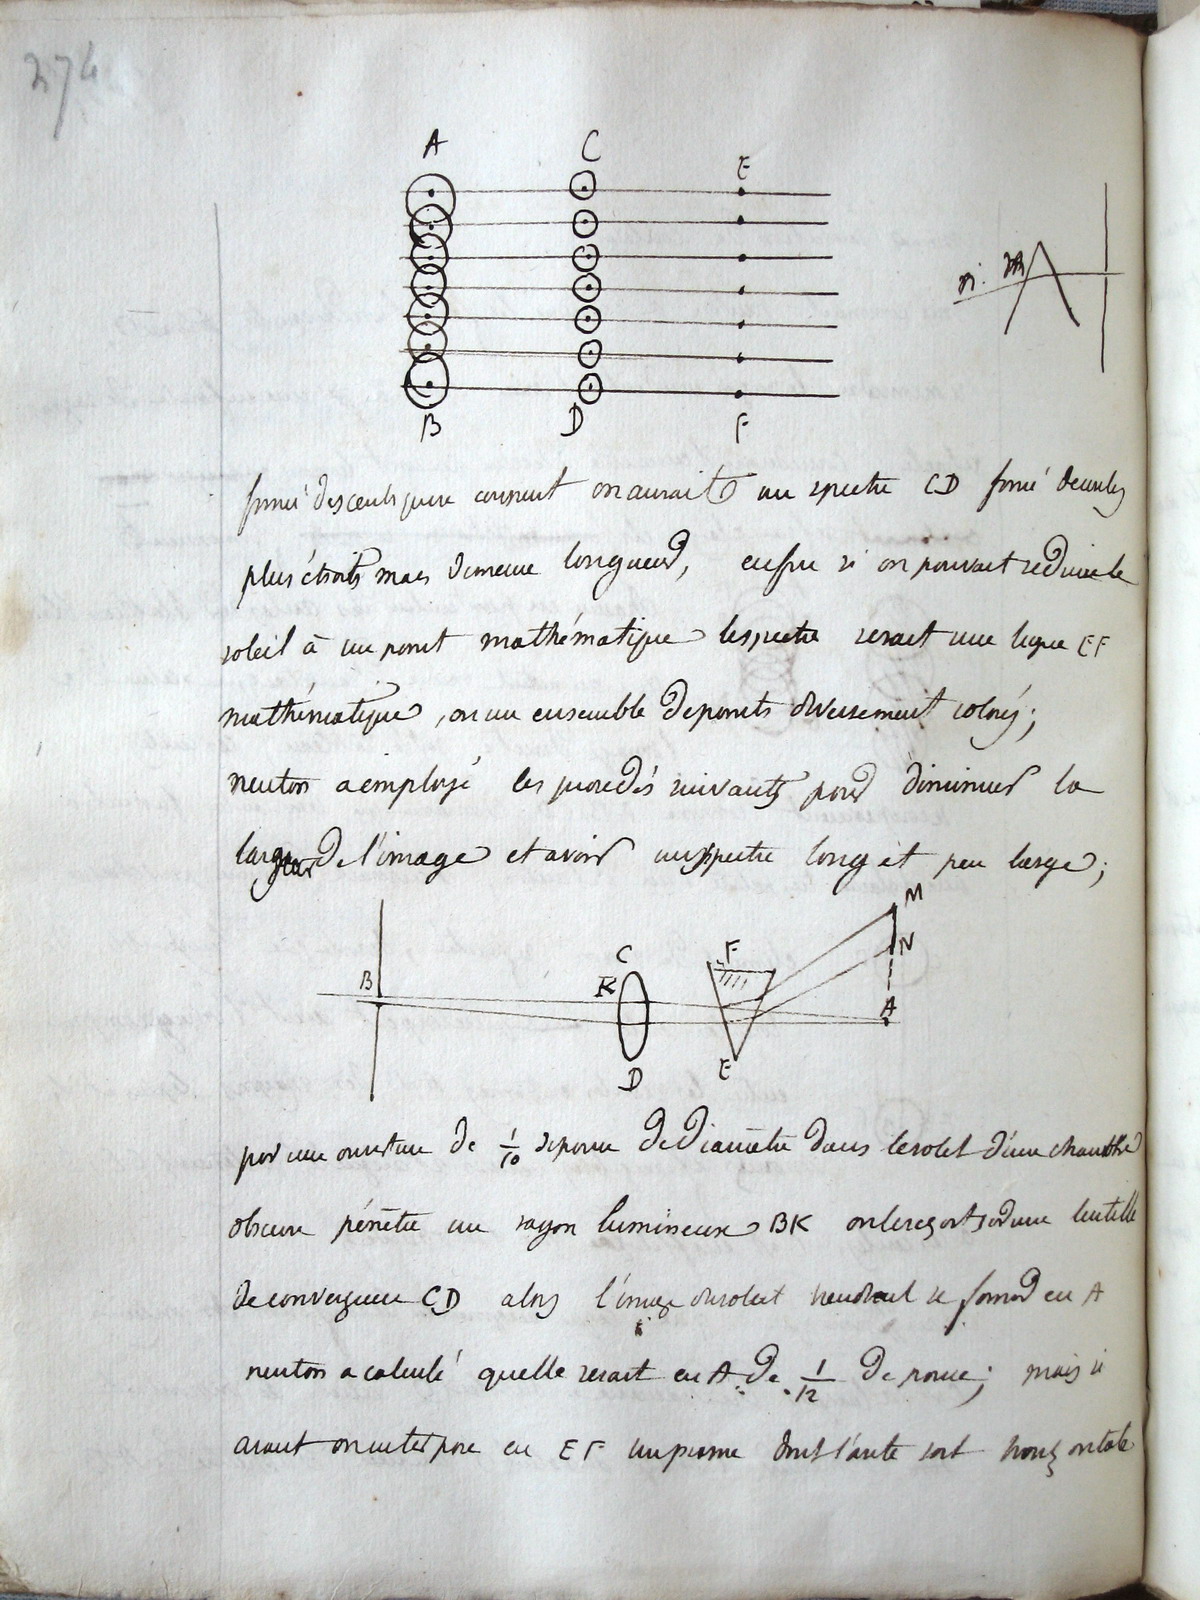 274
A C E
B D F
formé descents qui en coupent on aurait un spectre CD formé de cercles
plus étroits mais de meme longueur, enfin si on pouvait reduire le
soleil à un point mathématique le spectre serait une ligne EF
mathématique, ou un ensemble de points diversement colorés;
neuton a employé les procedés suivants pour diminuer la
largeur de l'image et avoir un spectre long et peu large;
M
F N
C
B K
A
D E
par une ouverture de 1/10 de pouce de diamètre dans le volet d'une chambre
obscure pénètre un rayon lumineux BK on le reçoit sur une lentille
de convergence CD alors l'image du soleil viendrait se former en A
neuton a calculé quelle serait en A de 1/12 de pouce; mais si
avant on interpose en EF un prisme dont l'arète soit horizontale